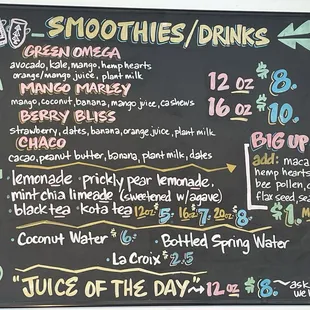 SMOOTHIES/DRINKS
GREEN OMEGA
avocado, kale, mango, hemp hearts
orange/mango juice, plant milk
MANGO MARLEY
mango, coconut, banana, mango juice, cashews
BERRY BLISS
strawberry, dates, banana, orange juice, plant milk
CHACO
cacao, peanut butter, banana, plant milk, dates
12 oz $8.
16 oz $10.
BIG UP
add: maca
hemp hearts
bee pollen,
flax seed,
$1.
lemonade · prickly pear lemonade,
mint chia limeade (sweetened w/agave)
black tea · kota tea 12oz 5 16oz $7. 20oz $8-
· Coconut Water $6· · Bottled Spring Water
· La Croix $2.5
"JUICE OF THE DAY" 12 oz $8.
ask